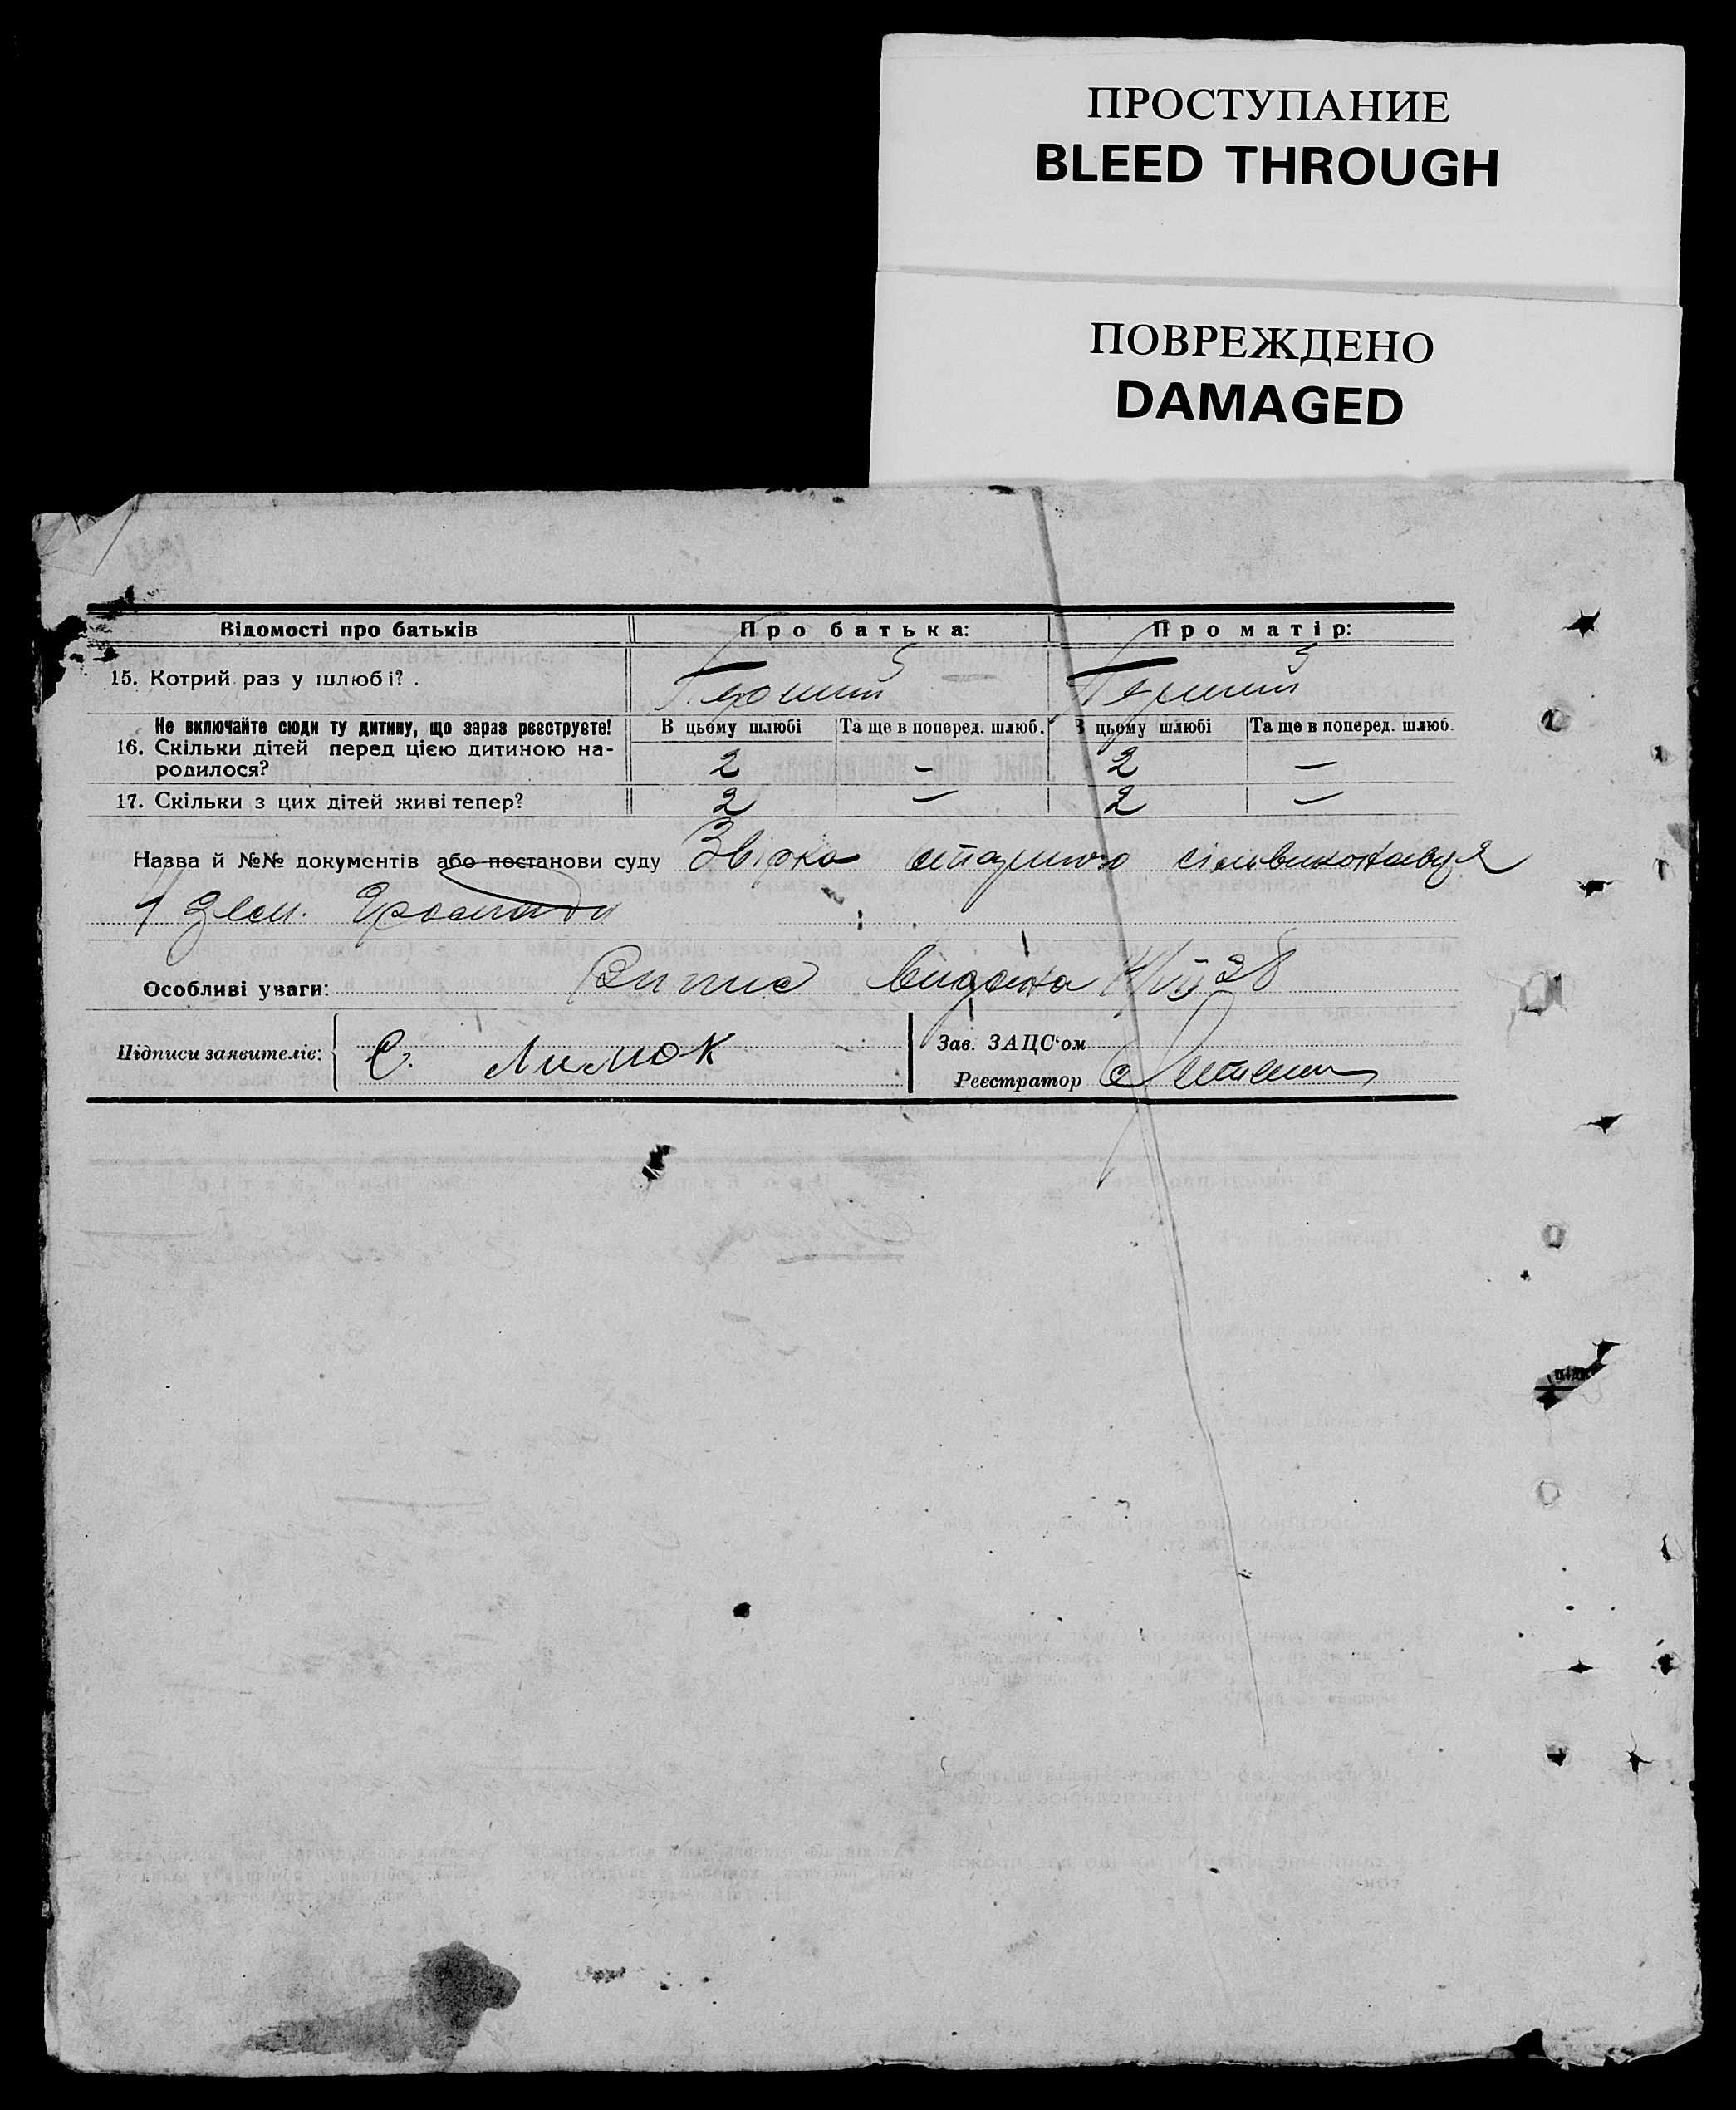 ПРОСТУПАНИЕ
BLEED THROUGH
ПОВРЕЖДЕНО
DAMAGED
Відомості про батьків Про батька: Про матір:
15. Котрий раз у шлюбі? . Перший Перший
Не включайте сюди ту дитину, що зараз реєструєте! В цьому шлюбі Та ще в поперед. шлюб. В цьому шлюбі Та ще в поперед. шлюб.
16. Скільки дітей перед цією дитиною на-
родилося? 2 – 2 –
17. Скільки з цих дітей живі тепер? 2 – 2 –
Назва й №№ документів або постанови суду Звірка старшого сільвиконавця
Зем. Громади
Особливі уваги: Витис видана 28
Підписи заявителів: С. Лимок Зав. ЗАЦС'ом
Реєстратор